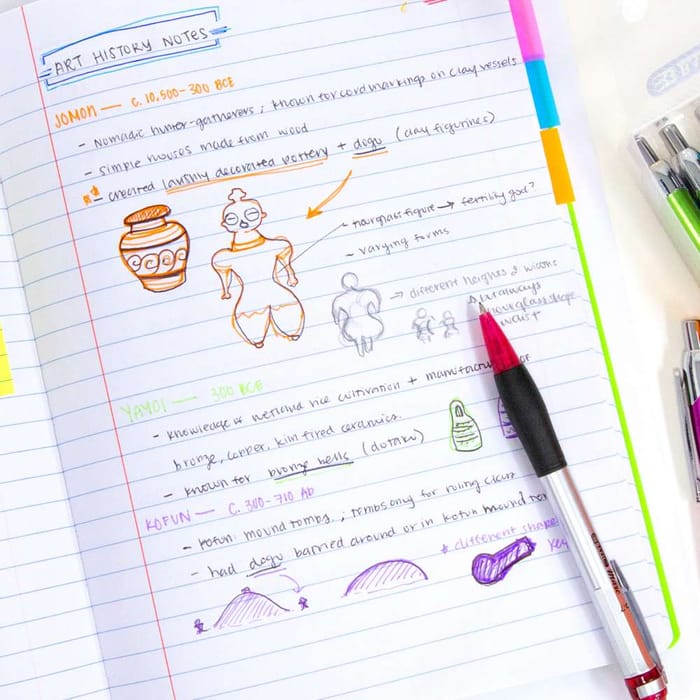 ART HISTORY NOTES
JOMON — C. 10,500-300 BCE
- Nomadic hunter-gatherers ; known for cord markings on clay vessels
- simple houses made from wood
- created lavishly decorated pottery + dogu (clay figurines)
- hourglass figure → fertility god?
- varying forms
→ different heights & widths
but always
hourglass shape
waist
YAYOI — 300 BCE
- knowledge of wetland rice cultivation + manufacture of
bronze, copper, kiln fired ceramics.
- known for bronze bells (dotaku)
KOFUN — C. 300-710 AD
- kofun: mound tombs ; tombs only for ruling class
- had dogu barried around or in kofun mound
* different shapes
key